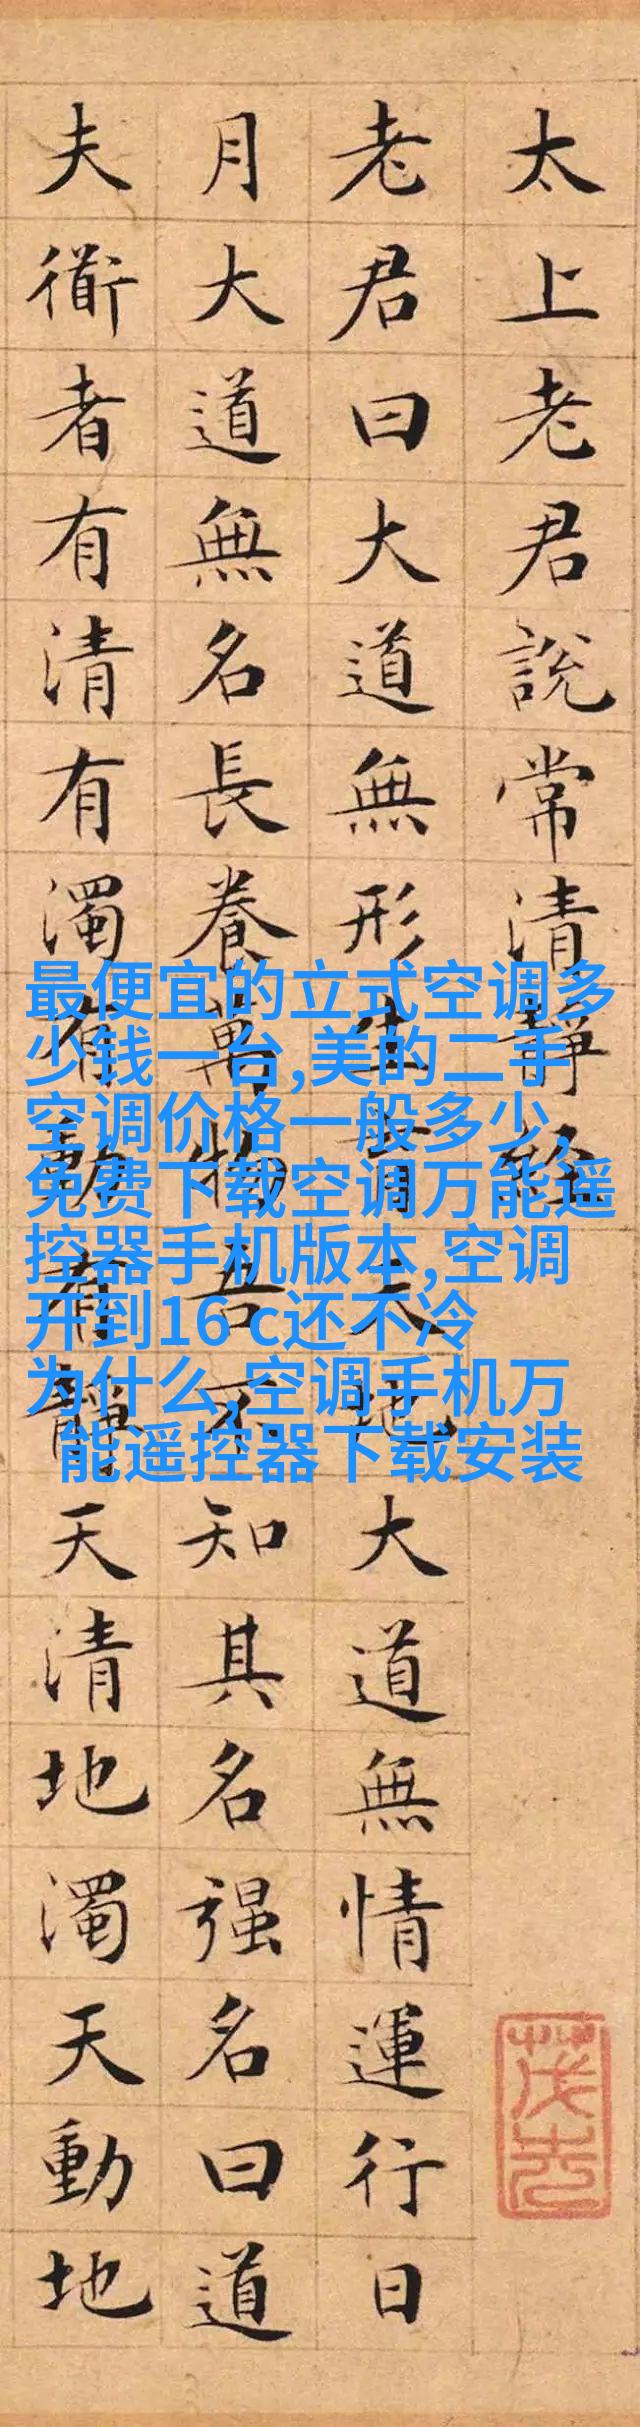 太上老君說常清靜經
老君曰大道無形生育天地大道無情運行日
月大道無名長養萬物吾不知其名强名曰道
夫衜者有清有濁有動有靜天清地濁天動地
最便宜的立式空调多
少钱一台,美的二手
空调价格一般多少,
免费下载空调万能遥
控器手机版本,空调
开到16 c还不冷
为什么,空调手机万
能遥控器下载安装